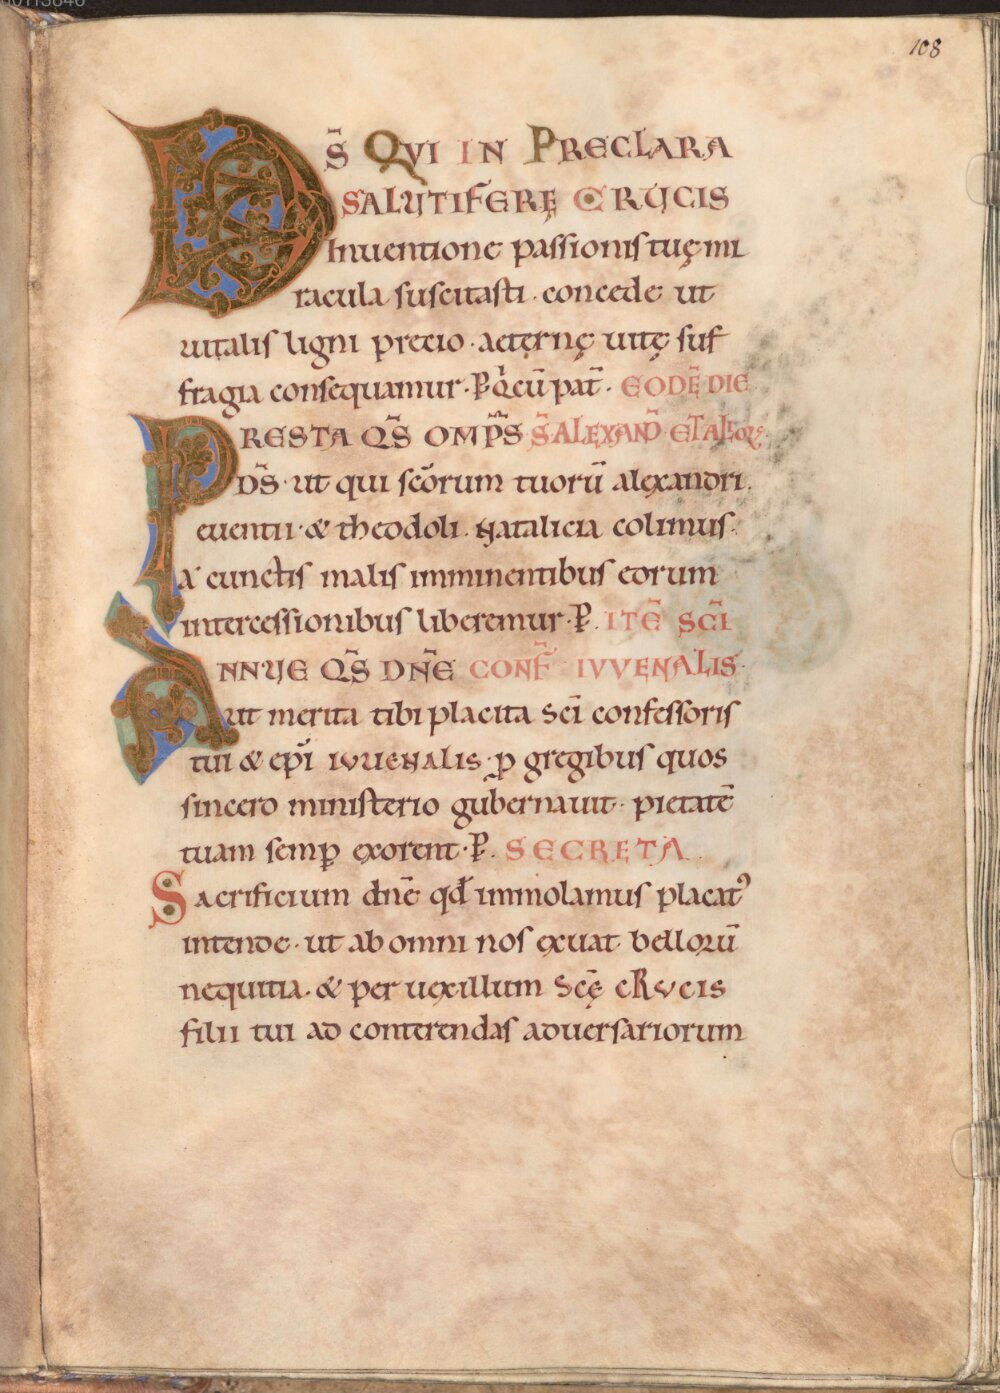 108
DS̄ QVI IN PRECLARA
SALUTIFERĘ CRUCIS
Inuentione passionis tuę mi
racula suscitasti · concede ut
uitalis ligni precio · aeternę uitę suf
fragia consequamur · P̱ Q̇ cū pat̄ · EODĒ DIE
PRESTA QS̄ OMP̄S S̄ ALEXAND̄ ET ALIOꝜ
DS̄ · ut qui scōrum tuorū alexandri ·
euentii · & theodoli · Natalicia colimus ·
A cunctis malis imminentibus eorum
intercessionibus liberemur · P̱ · ITĒ SCĪ
ANNUE QS̄ DN̄E CONF̄ IVVENALIS ·
ut merita tibi placita Scī confessoris
tui & ep̄i IVUENALIS · ꝓ gregibus quos
sincero ministerio gubernauit · pietatē
tuam semꝑ exorent · P̱ · SECRETA
Sacrificium dn̄e qđ immolamus placatꝰ
intende · ut ab omni nos exuat bellorū
nequitia · & per uexillum Scę̄ CRVCIS
filii tui ad conterendas aduersariorum